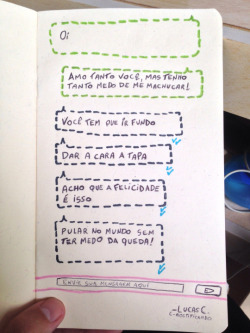 Oi
AMO TANTO VOCÊ, MAS TENHO
TANTO MEDO DE ME MACHUCAR!
VOCÊ TEM QUE IR FUNDO
DAR A CARA A TAPA
ACHO QUE A FELICIDADE
É ISSO
PULAR NO MUNDO SEM
TER MEDO DA QUEDA!
ENVIE SUA MENSAGEM AQUI
-LUCAS C.